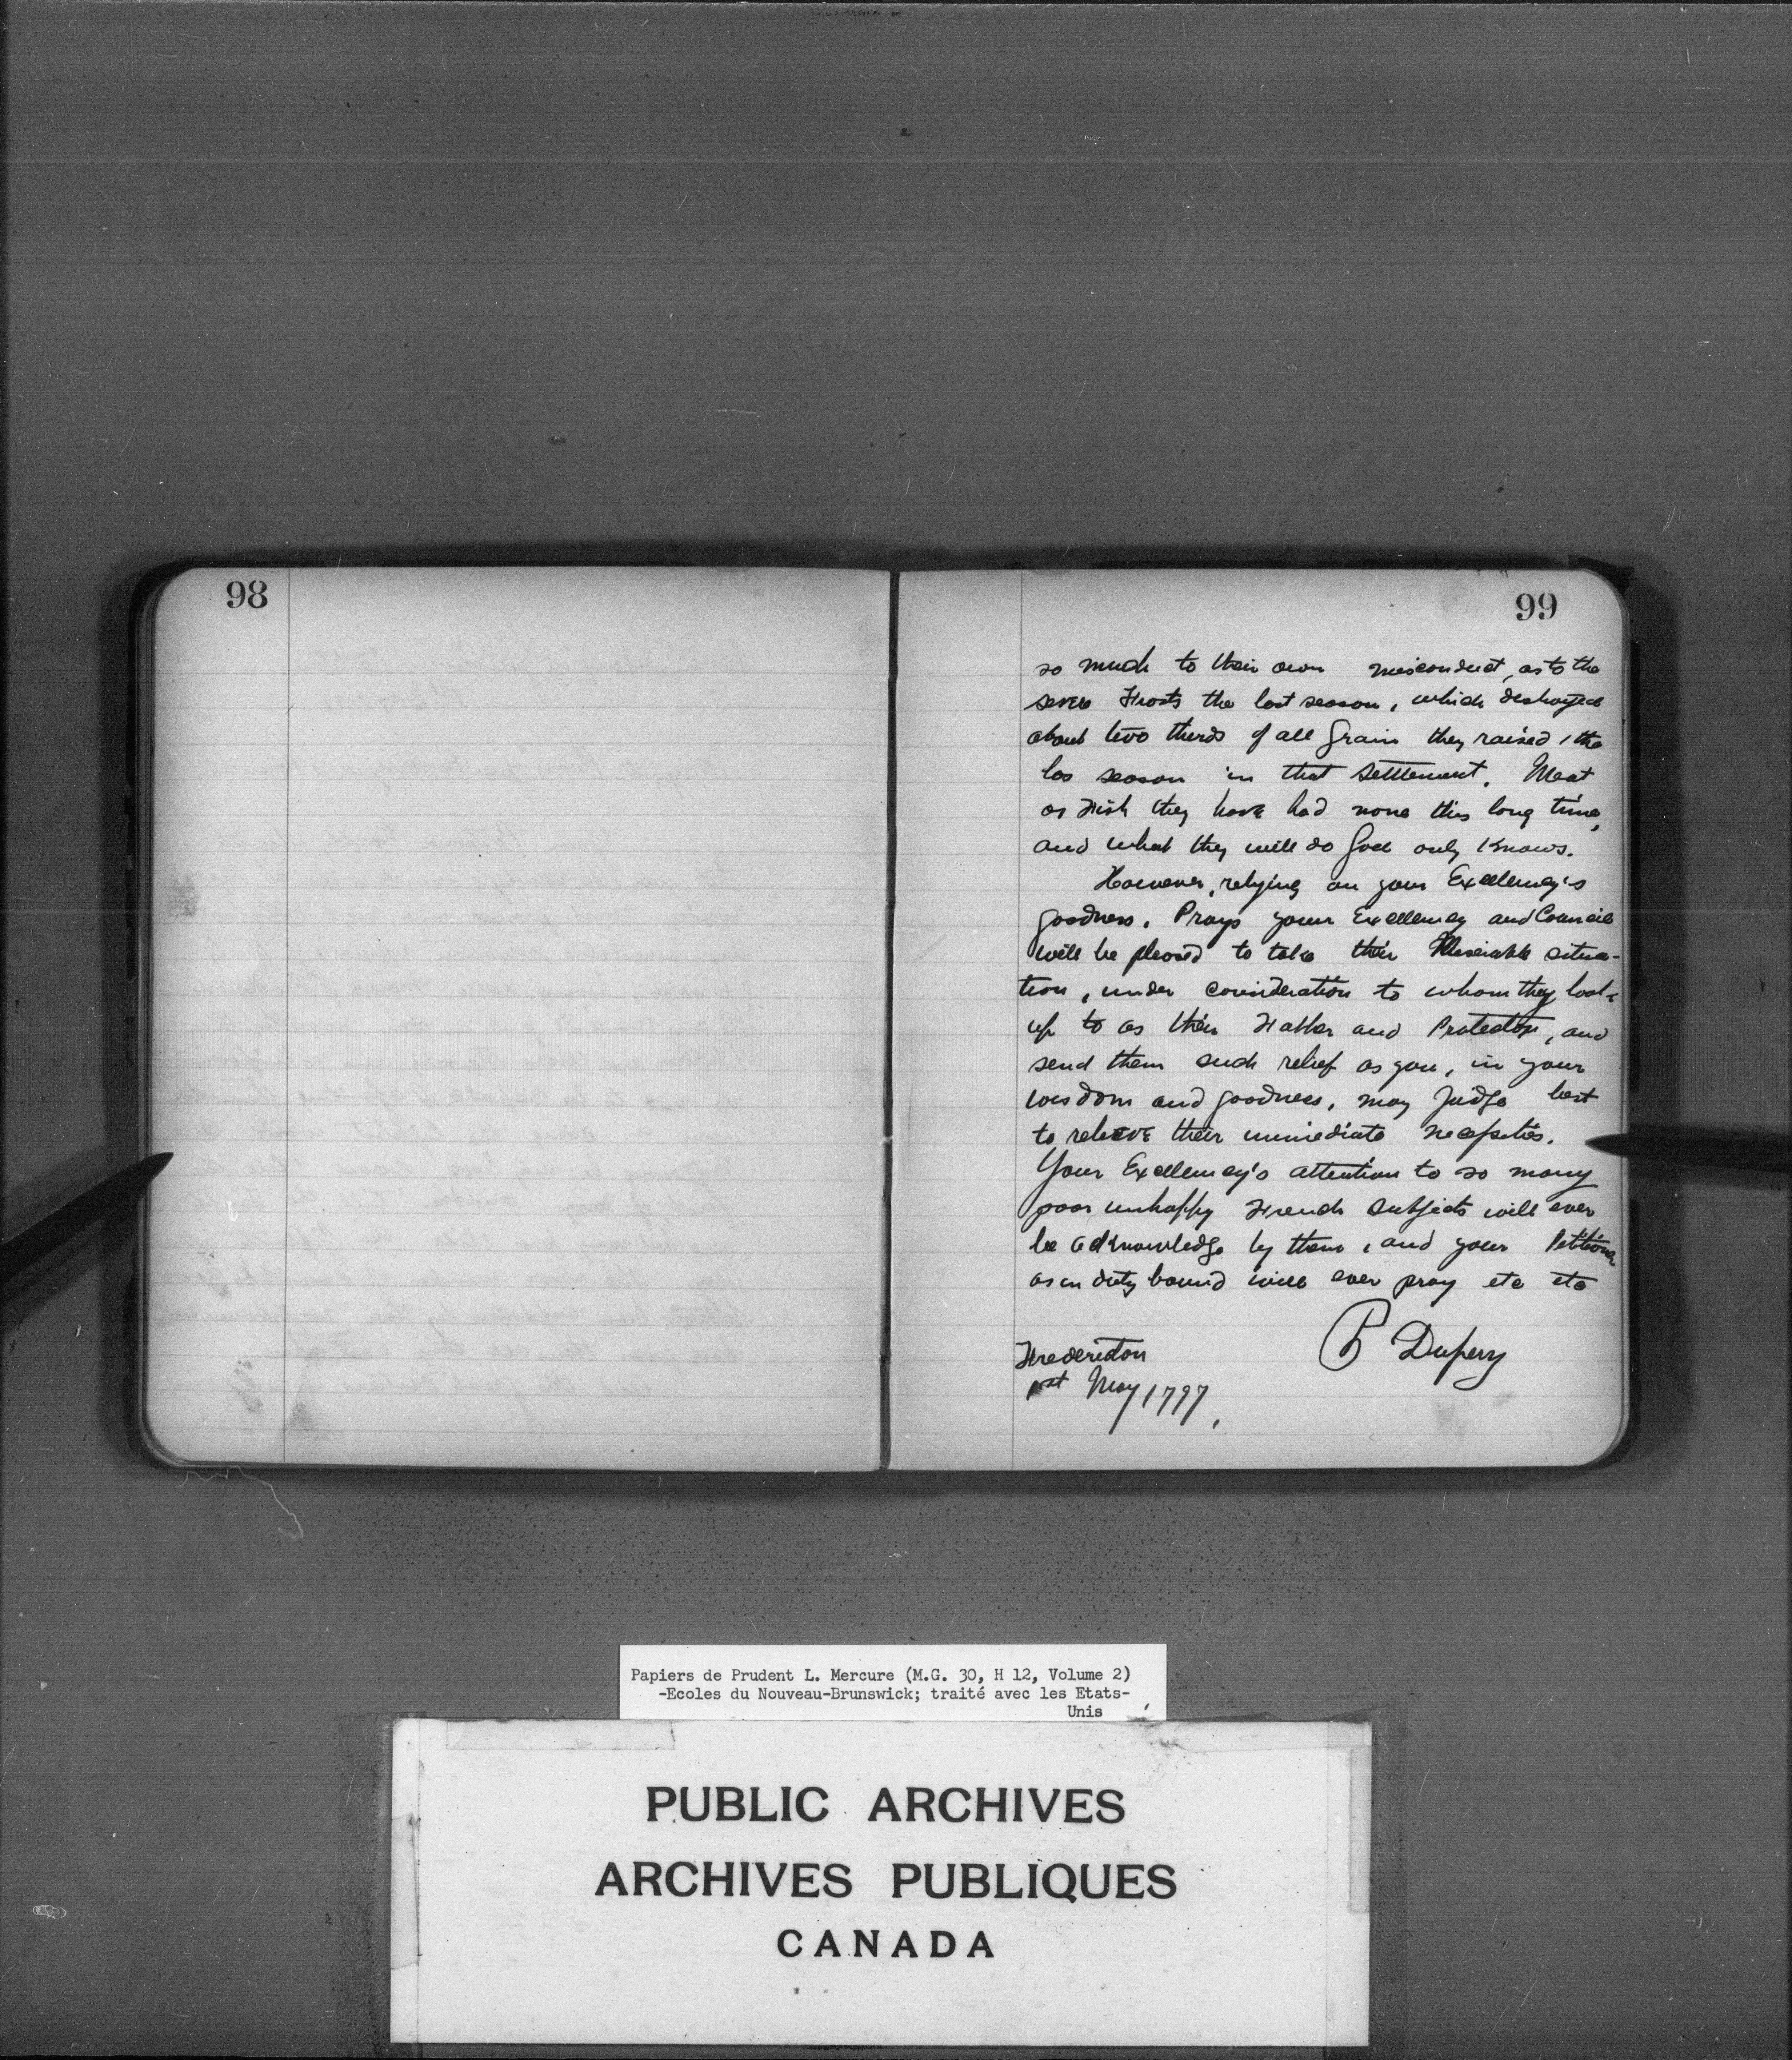 98
99
so much to their own misconduct, as to the
severe Frosts the last season, which destroyed
about two thirds of all Grain they raised, the
las season in that Settlement. Meat
or Fish they have had none this long time,
and what they will do God only knows.
However, relying on your Excellency's
goodness. Prays your Excellency and Council
will be pleased to take their Miserable situa-
tion, under consideration to whom they look
up to as their Father and Protector, and
send them such relief as you, in your
wisdom and goodness, may Judge best
to relieve their immediate necessities.
Your Excellency's attention to so many
poor unhappy French Subjects will ever
be acknowledge by them, and your Petitioner
as in duty bound will ever pray etc etc
P Dupery
Fredericton
1st May 1797.
Papiers de Prudent L. Mercure (M.G. 30, H 12, Volume 2)
-Ecoles du Nouveau-Brunswick; traité avec les Etats-
Unis
PUBLIC ARCHIVES
ARCHIVES PUBLIQUES
CANADA